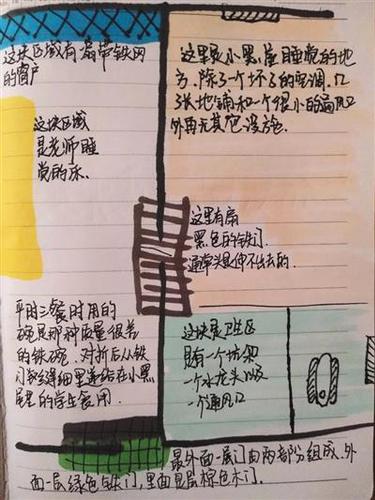 这块区域有扇带铁网
的窗户
这里是小黑屋睡觉的地
方。除了一个坏了的空调、几
张地铺和一个很小的通风口
外再无其它设施。
这块区域
是老师睡
觉的床。
这里有扇
黑色的铁门
通常头是伸不出去的.
平时三餐时用的
碗是那种质量很差
的铁碗.对折后从铁
门
在小黑
屋里的学生食用.
这块是卫生区
只有一个坑架
一个水龙头以及
一个通风口
最外面一层门由两部分组成.外
面一层绿色铁门,里面是层棕色木门.